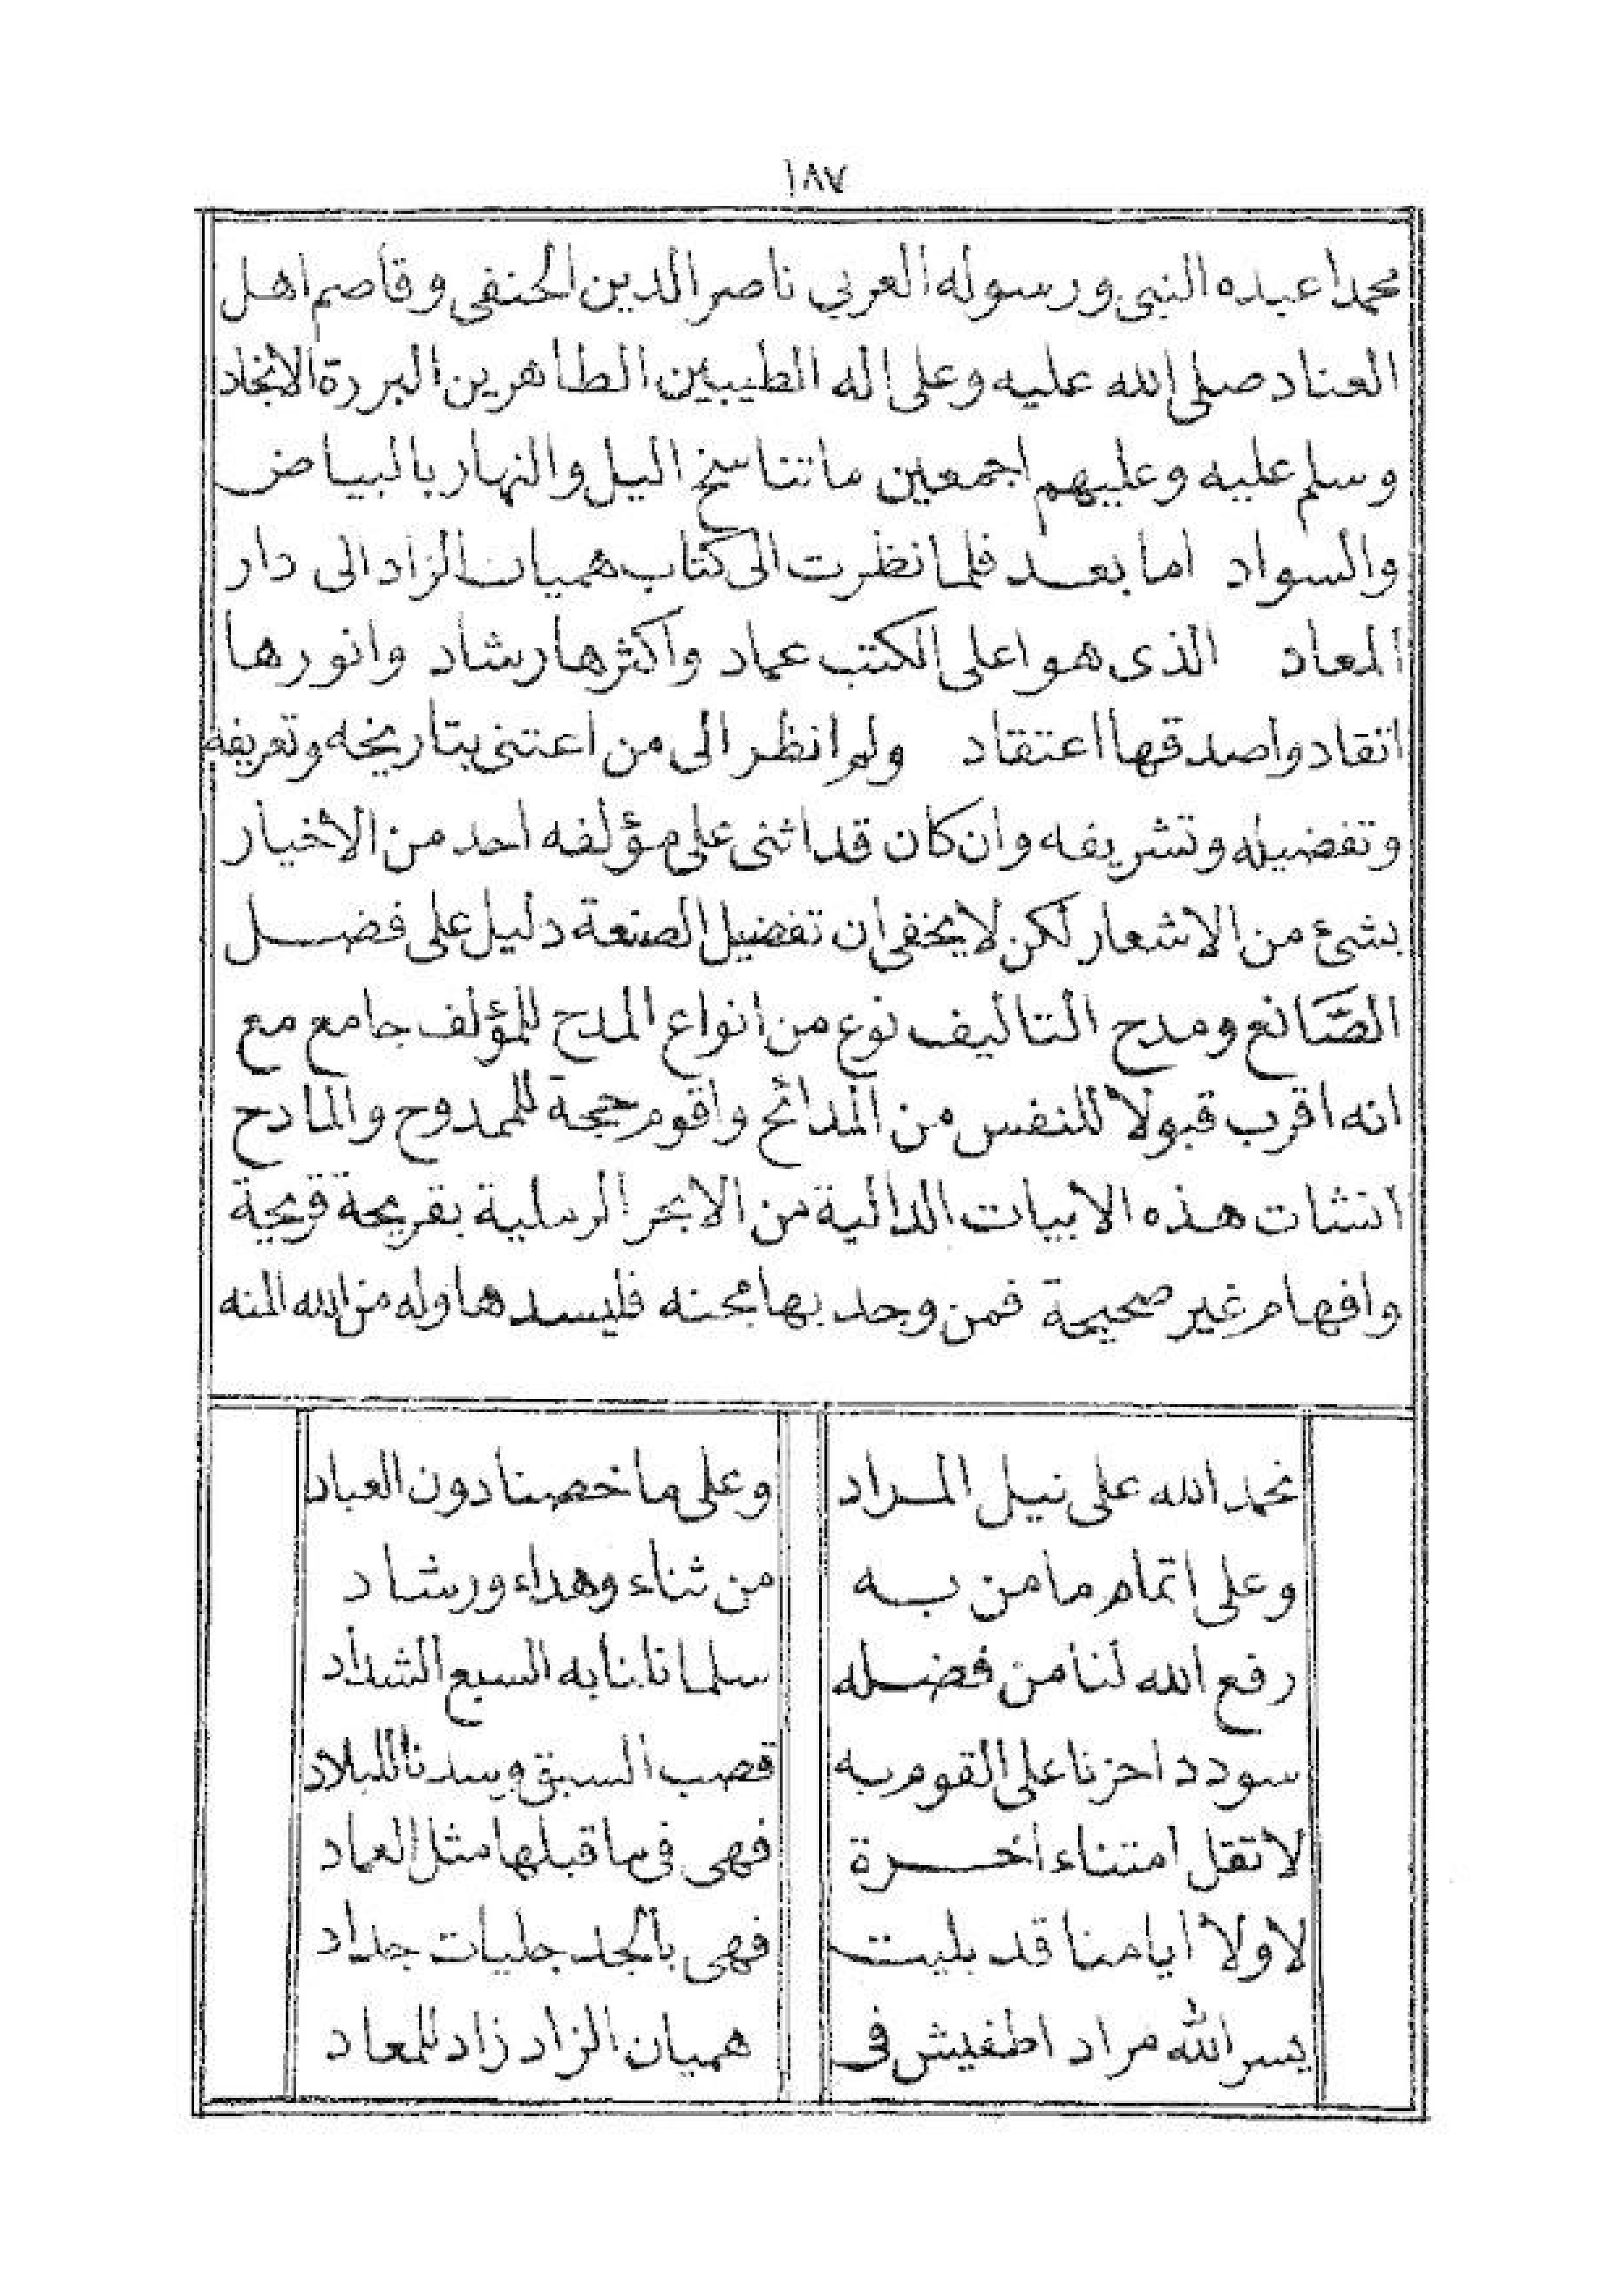 ١٨٧
محمدا عبده النبى ورسوله العربي ناصر الدين الحنفى وقاصم اهل
العناد صلى الله عليه وعلى اله الطيبين الطاهرين البررة الانجاد
وسلم عليه وعليهم اجمعين ماتناسخ اليل والنهار بالبياض
والسواد اما بعد فلما نظرت الى كتاب هميان الزاد الى دار
المعاد الذى هو اعلى الكتب عماد واكثرها رشاد وانورها
اتقاد واصدقها اعتقاد ولم انظر الى من اعتنى بتاريخه وتعريفه
وتفضيله وتشريفه وان كان قد اثنى على مؤلفه احد من الاخيار
بشئ من الاشعار لكن لا يخفى ان تفضيل الصنعة دليل على فضل
الصَّانع ومدح التاليف نوع من انواع المدح للمؤلف جامع مع
انه اقرب قبولا للنفس من المدائح واقوم حجة للممدوح والمادح
انشات هذه الابيات الدالية من الابحر الرملية بقريحة قريحة
وافهام غير صحيحة فمن وجد بها محنه فليسدها وله من الله المنه
نحمد الله على نيل المراد وعلى ما خصنا دون العباد
وعلى اتمام ما من به من ثناء وهداء ورشاد
رفع الله لنا من فضله سلما نابنا به السبع الشداد
سودد احزنا على القوم به قصب السبق وسدنا للبلاد
لا تقل امتناء اخرة فهى فى ما قبلها مثل العماد
لا ولا ايامنا قد بليت فهى بالجد جليات جداد
يسر الله مراد اطفيش فى هميان الزاد زاد للمعاد